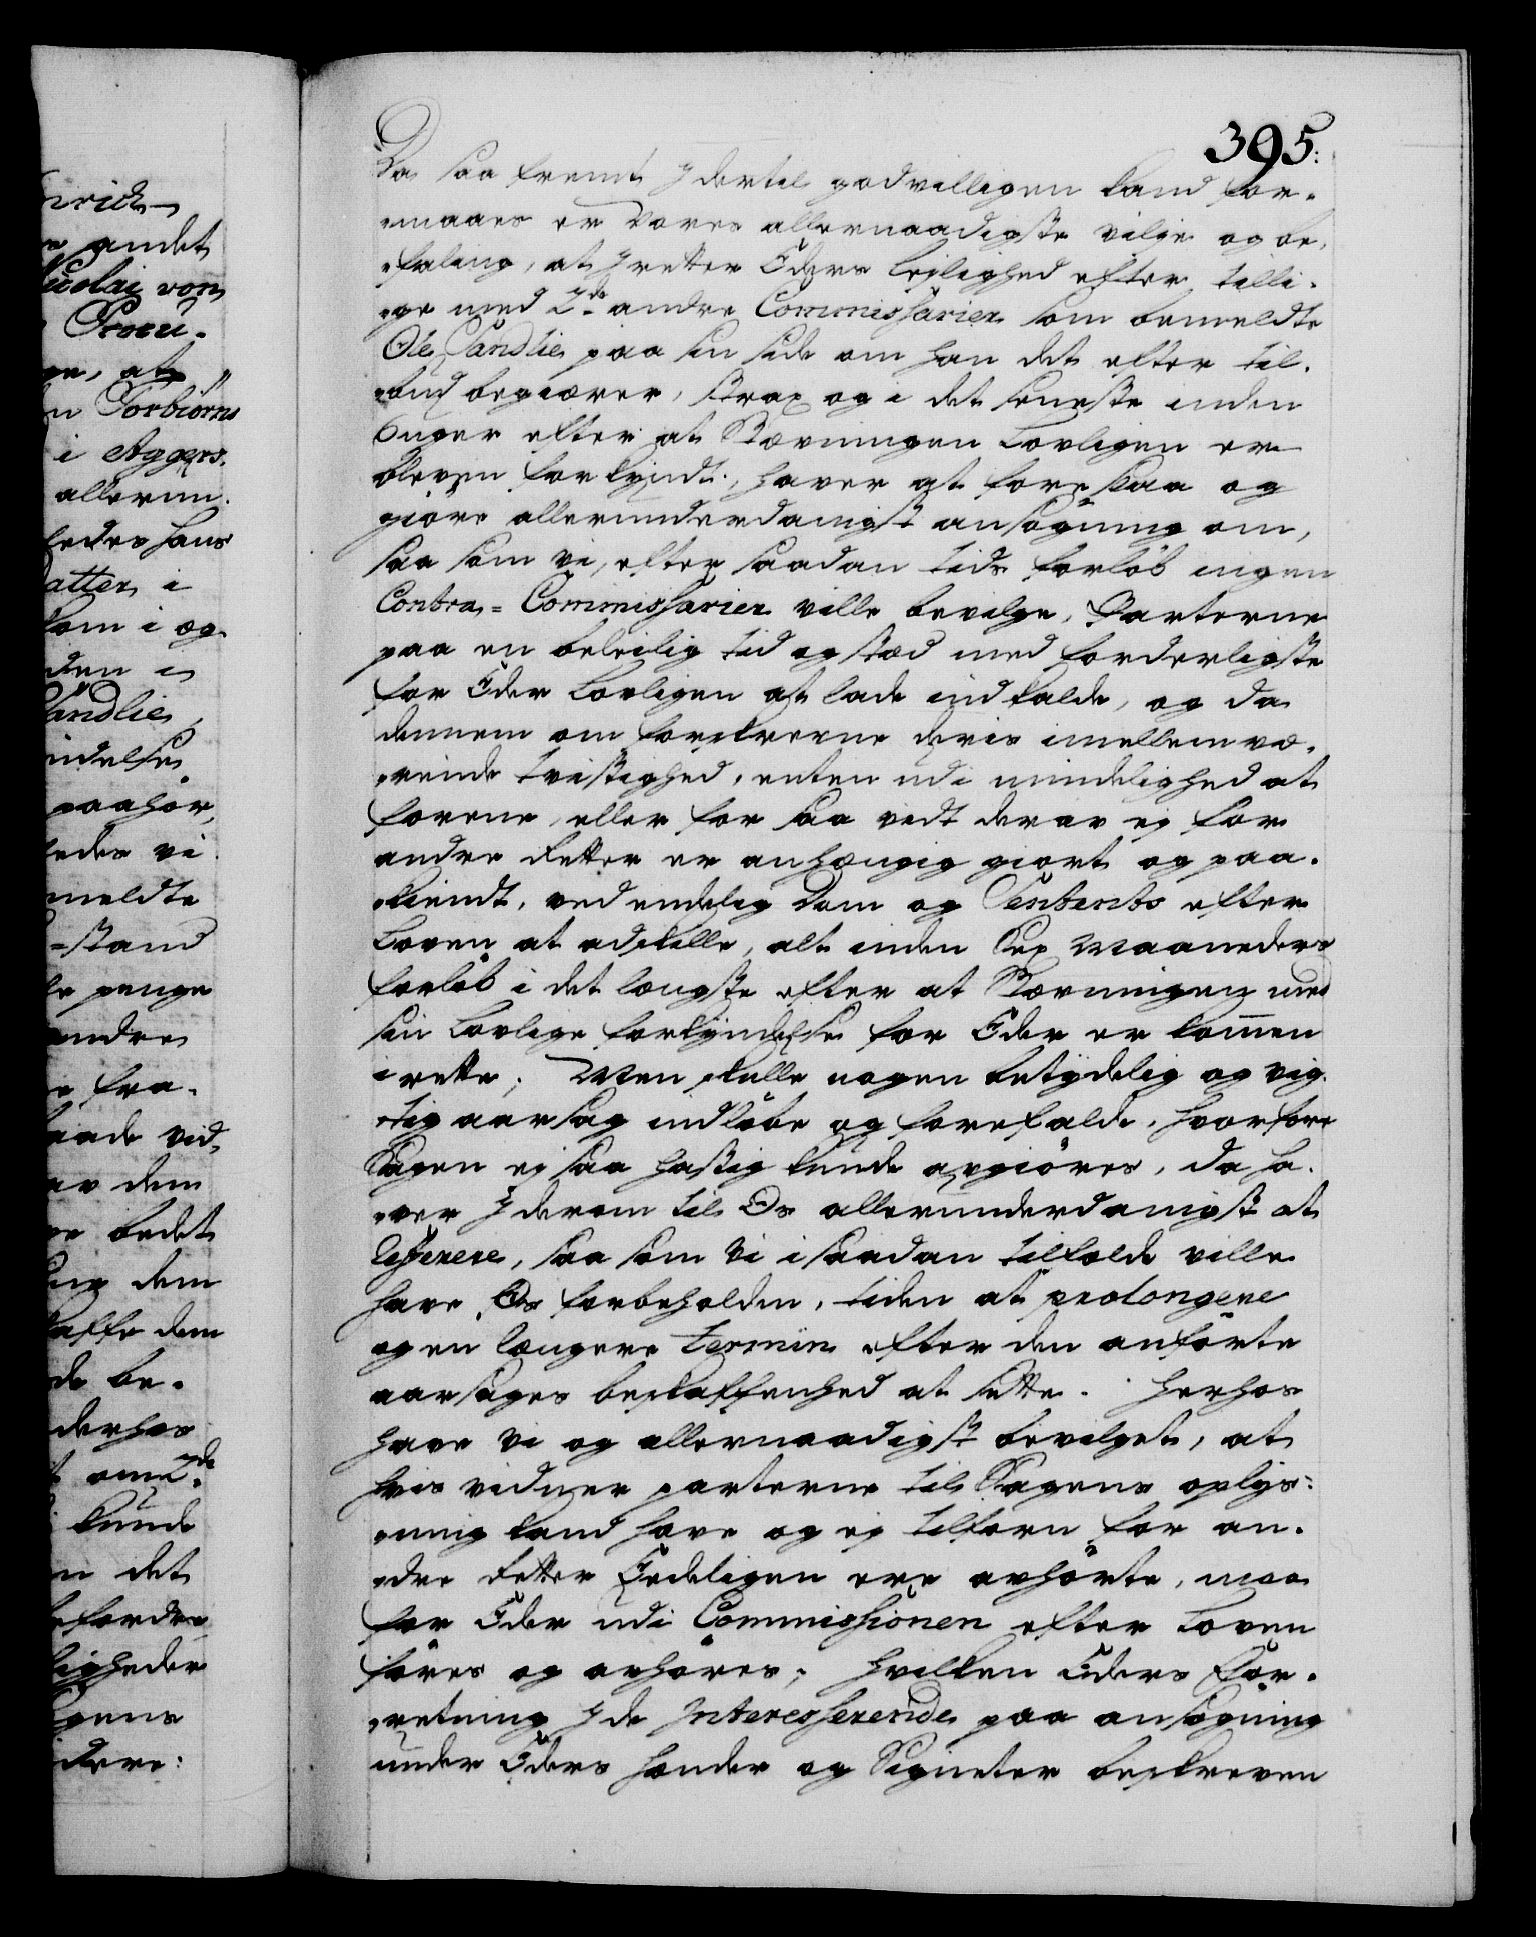 395:
Da saa fremt I dertil godvilligen kand for-
-maaes er Vores allernaadigste vilge og be-
-faling, at I retter Eders leylighed efter tilli-
-ge med 2de andre Commissarier som bemeldte
Ole Sandlie paa sin side om han det efter til-
-bud begiærer, strax og i det seneste inden
6 uger efter at Stævningen Lovligen er
bleven forkyndt, haver at foreslaa og
giøre allerunderdanigst ansøgning om,
saa som vi, efter saadan tids forløb ingen
Contra-Commissarier ville bevilge, Parterne
paa en beleilig tid og stæd med forderligste
for Eder Lovligen at lade indkalde, og da
dennem om forskrevne deris imellem væ-
-rende tvistighed, enten udi mindelighed at
forene, eller for saa vidt derav ej for
andre Retter er anhængig giort og paa-
-kiendt, ved endelig Dom og Sententz efter
Loven at adskille, alt inden Sex Maaneders
forløb i det længste efter at Stævningen med
sin Lovlige forkyndelse for Eder er kommen
i rette; Men skulle nogen betydelig og vig-
-tig aarsag indløbe og forefalde, hvorfore
Sagen ej saa hastig kunde avgiøres, da ha-
-ver I derom til Os allerunderdanigst at
referere, saa som Vi i saadan tilfælde ville
have Os forbeholden, tiden at prolongere
og en længere termin efter den anførte
aarsages beskaffenhed at sette. Herhos
have Vi og allernaadigst bevilget, at
hvis vidner parterne til Sagens oplys-
-ning kand have og ej tilforn for an-
-dre Retter Eedeligen ere avhørte, maa
for Eder udi Commissionen efter Loven
føres og avhøres; hvilken Eders for-
-retning I de Interesserende paa ansøgning
under Eders hænder og Signeter beskreven